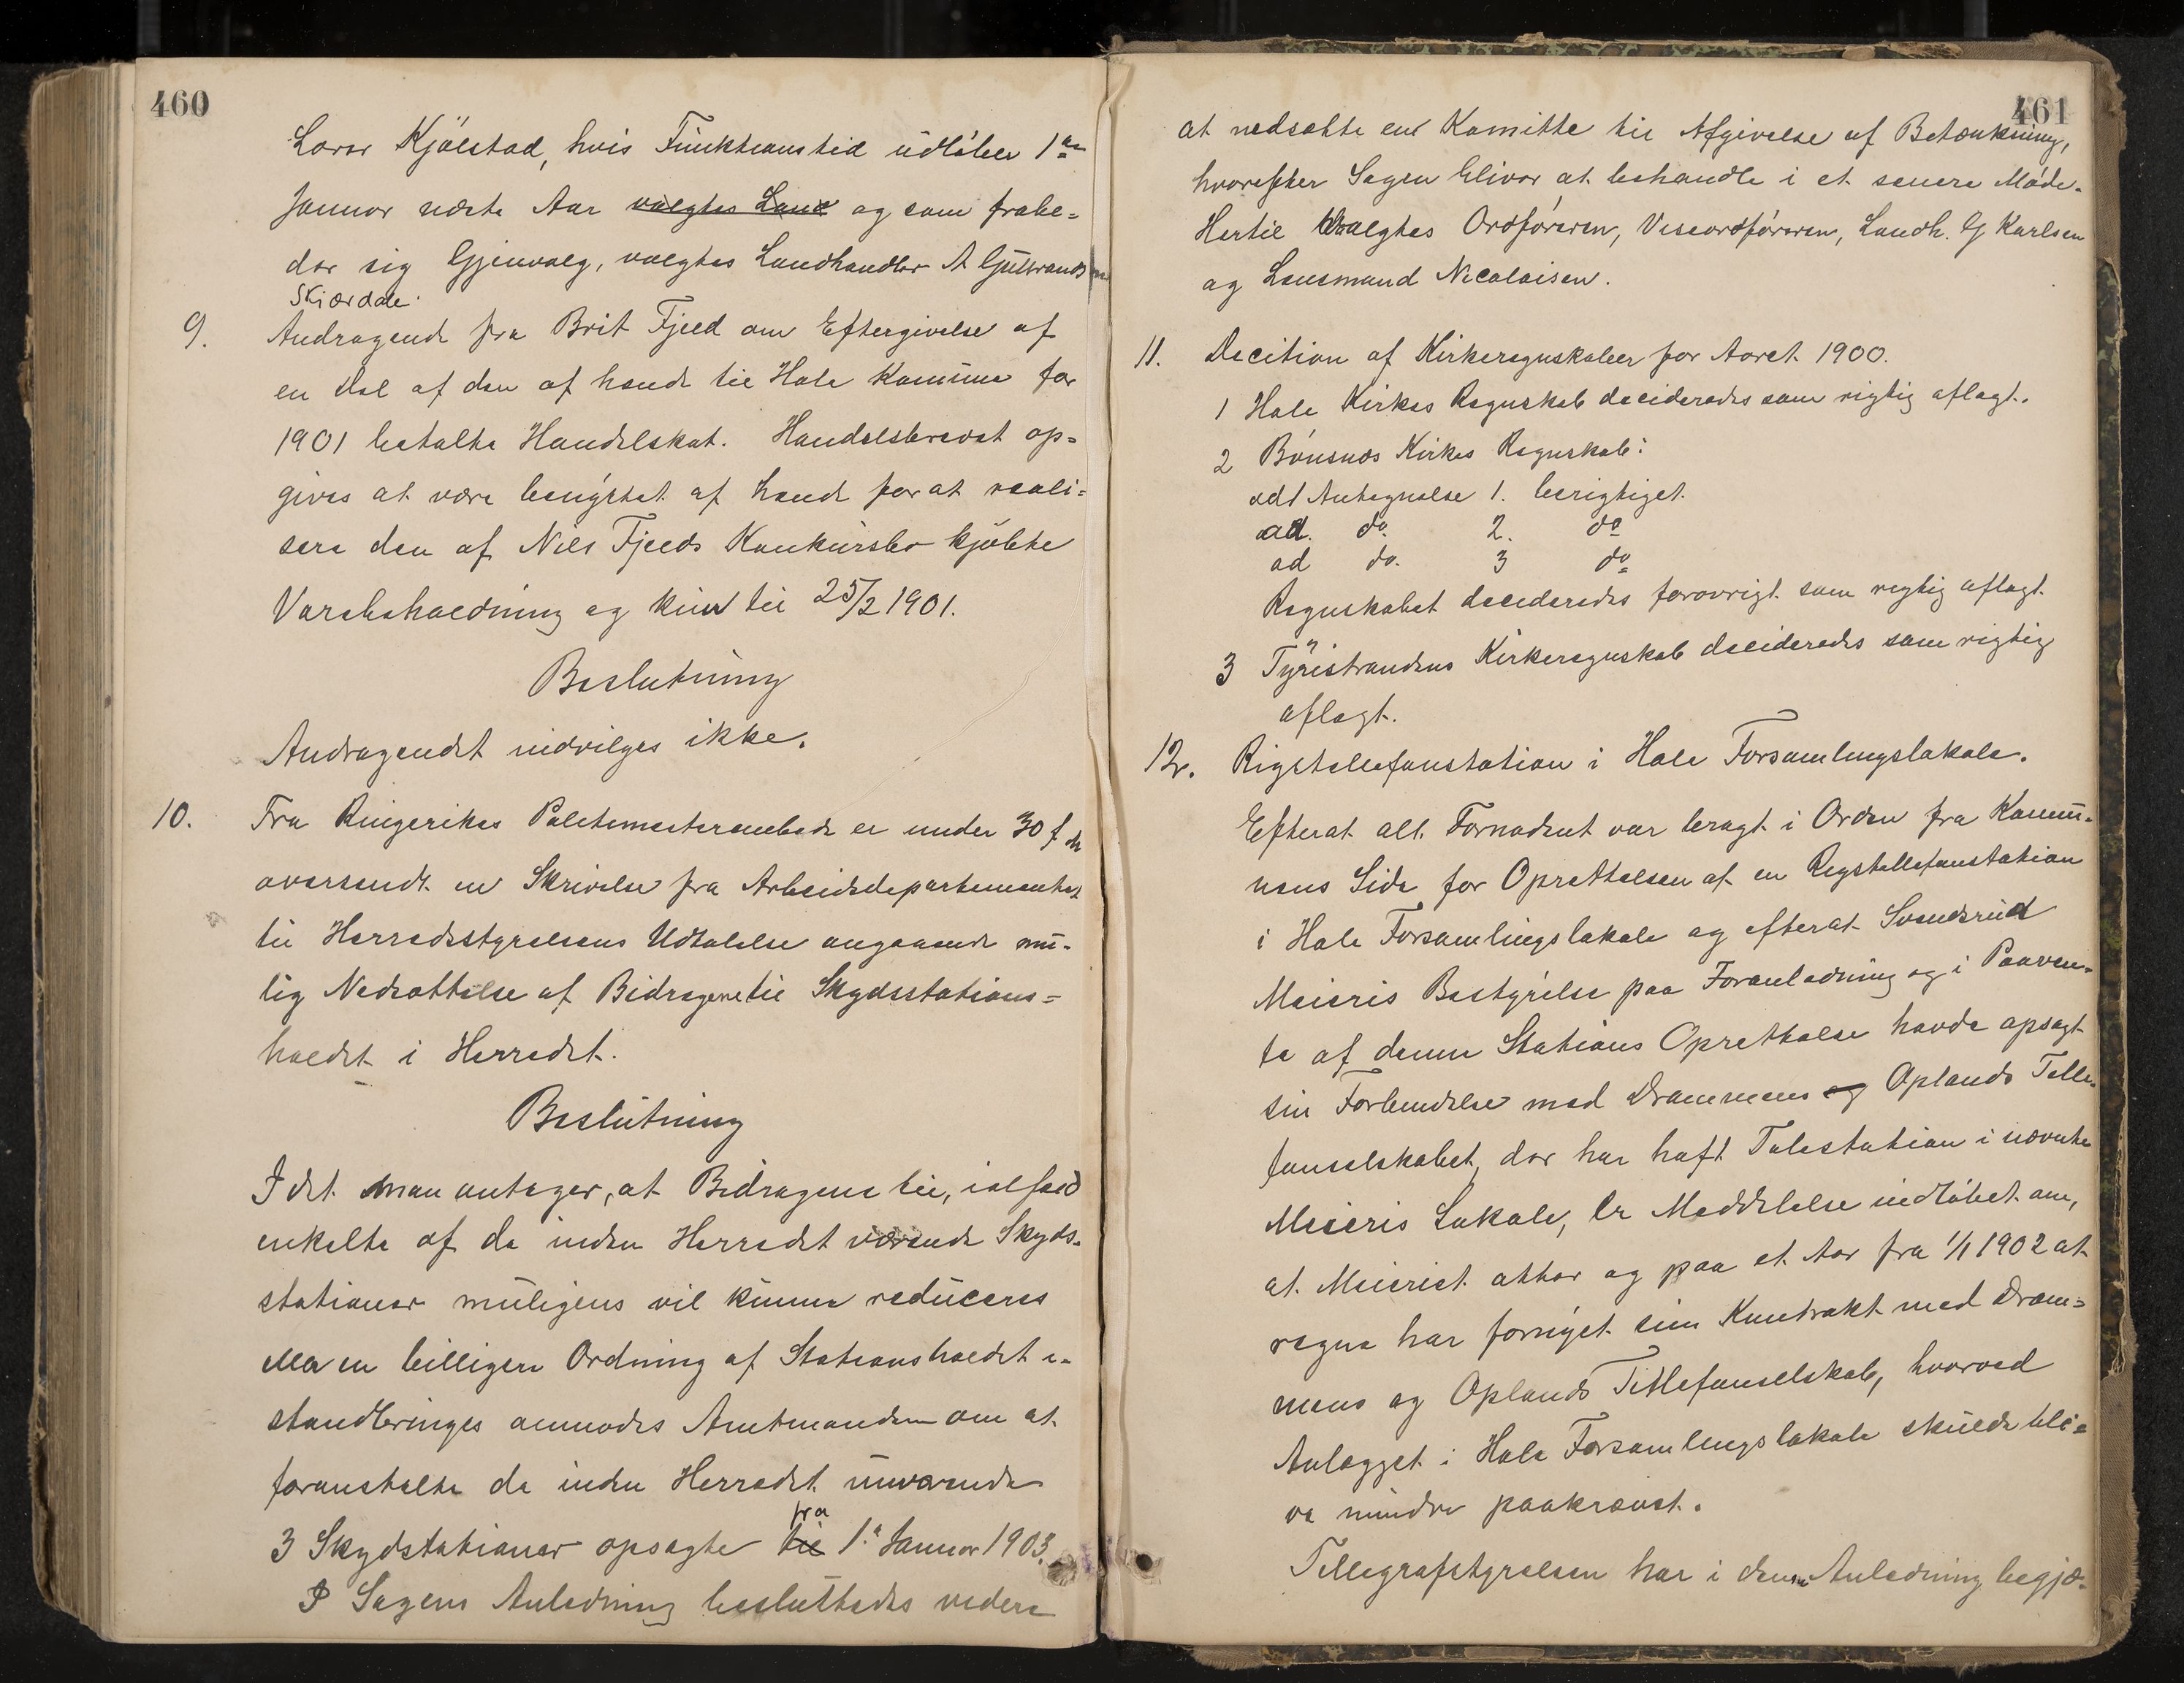 460
Lærer Kjölstad, hvis Funktionstid udlöber 1ste
Januar næste Aar valgtes Land og som frabe-
der sig Gjenvalg, valgtes Landhandler A Gulbrandsen
Skjærdale.
9. Andragende fra Brit Fjeld om Eftergivelse af
en Del af den af hende til Hole Kommune for
1901 betalte Handelskat. Handelsbrevet op-
gives at være benyttet af hende for at reali-
sere den af Nils Fjelds Konkursbo kjöbte
Varebeholdning og kun til 25/2 1901.
Beslutning
Andragendet indvilges ikke.
10. Fra Ringerikes Politimesterembede er under 30 f. M
oversendt en Skrivelse fra Arbeidsdepartementet
til Herredsstyrelsens Udtalelse angaaende mu-
lig Nedsættelse af Bidragene til Skydsstations-
holdet i Herredet.
Beslutning
Idet man antager, at Bidragene til, ialfald
enkelte af de inden Herredet værende Skyds-
stationer muligens vil kunne reduceres
eller en billigere Ordning af Stationsholdet i-
standbringes anmodes Amtmanden om at
foranstalte de inden Herredet nuværende
fra
3 Skydstationer opsagte til 1ste Januar 1903.
I Sagens Anledning besluttedes videre
461
at nedsætte en Komitte til Afgivelse af Betænkning,
hvorefter Sagen bliver at behandle i et senere Möde.
Hertil valgtes Ordföreren, Viseordföreren, Landh. G Karlsen
og Lensmand Nicolaisen.
11. Decition af Kirkeregnskaber for Aaret 1900.
1 Hole Kirkes Regnskab decideredes som rigtig aflagt.
2 Bönsnes Kirkes Regnskab:
ad 1 Antegnelse 1. berigtiget.
ad. do. 2. do
ad do. 3 do
Regnskabet decideredes forøvrigt som rigtig aflagt.
3 Tyristrandens Kirkeregnskab decideredes som rigtig
aflagt.
12. Rigstellefonstation i Hole Forsamlingslokale.
Efterat alt Fornødent var bragt i Orden fra Kommu-
nens Side for Oprettelsen af en Rigstellefonstation
i Hole Forsamlingslokale og efterat Svendsrud
Meieris Bestyrelse paa Foranledning og i Paaven-
te af denne Stations Oprettelse havde opsagt
sin Forbindelse med Drammens og Oplands Telle-
fonselskabet, der har haft Talestation i nævnte
Meieris Lokale, er Meddelelse indlöbet om,
at Meieriet atter og paa et Aar fra 1/1 1902 at
regne har fornyet sin Kontrakt med Dram-
mens og Oplands Tellefonselskab, hvorved
Anlægget i Hole Forsamlingslokale skulde bli-
ve mindre paakrævet.
Tellegrafstyrelsen har i denne Anledning begjæ-